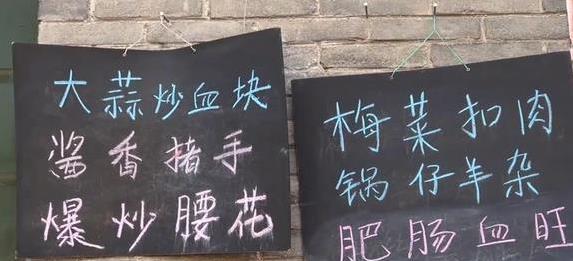 大蒜炒血块
酱香猪手
爆炒腰花
梅菜扣肉
锅仔羊杂
肥肠血旺